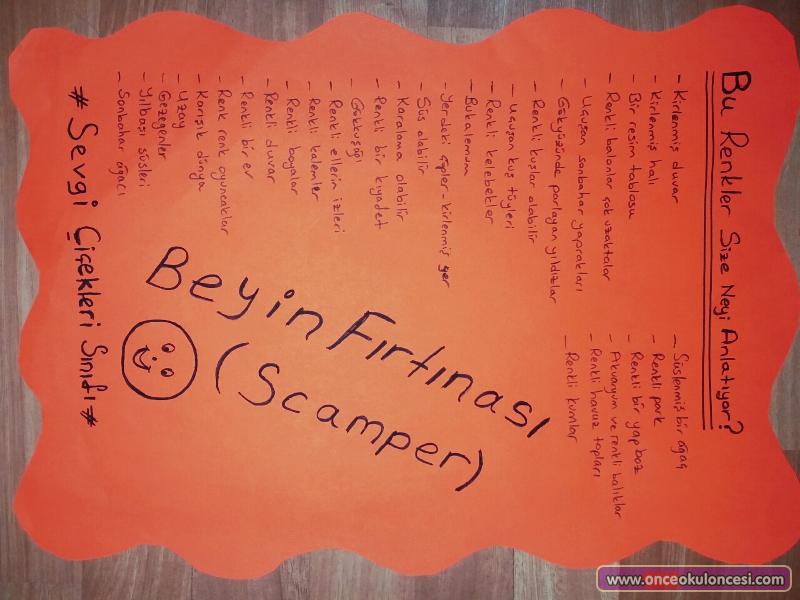 Bu Renkler Size Neyi Anlatıyor?
- Kirlenmiş duvar
- Kirlenmiş halı
- Bir resim tablosu
- Renkli balonlar çok uzaktalar
- Uçuşan sonbahar yaprakları
- Gökyüzünde parlayan yıldızlar
- Renkli kuşlar olabilir
- Uçuşan kuş tüyleri
- Renkli kelebekler
- Bukalemun
- Yerdeki çöpler - kirlenmiş yer
- Süs olabilir
- Karalama olabilir
- Renkli bir kıyafet
- Gökkuşağı
- Renkli ellerin izleri
- Renkli kalemler
- Renkli boyalar
- Renkli duvar
- Renkli bir ev
- Renk renk oyuncaklar
- Karışık dünya
- Uzay
- Gezegenler
- Yılbaşı süsleri
- Sonbahar ağacı
- Süslenmiş bir ağaç
- Renkli park
- Renkli bir yap boz
- Akvaryum ve renkli balıklar
- Renkli havuz topları
- Renkli kumlar
Beyin Fırtınası
(Scamper)
# Sevgi Çiçekleri Sınıfı #
www.onceokuloncesi.com